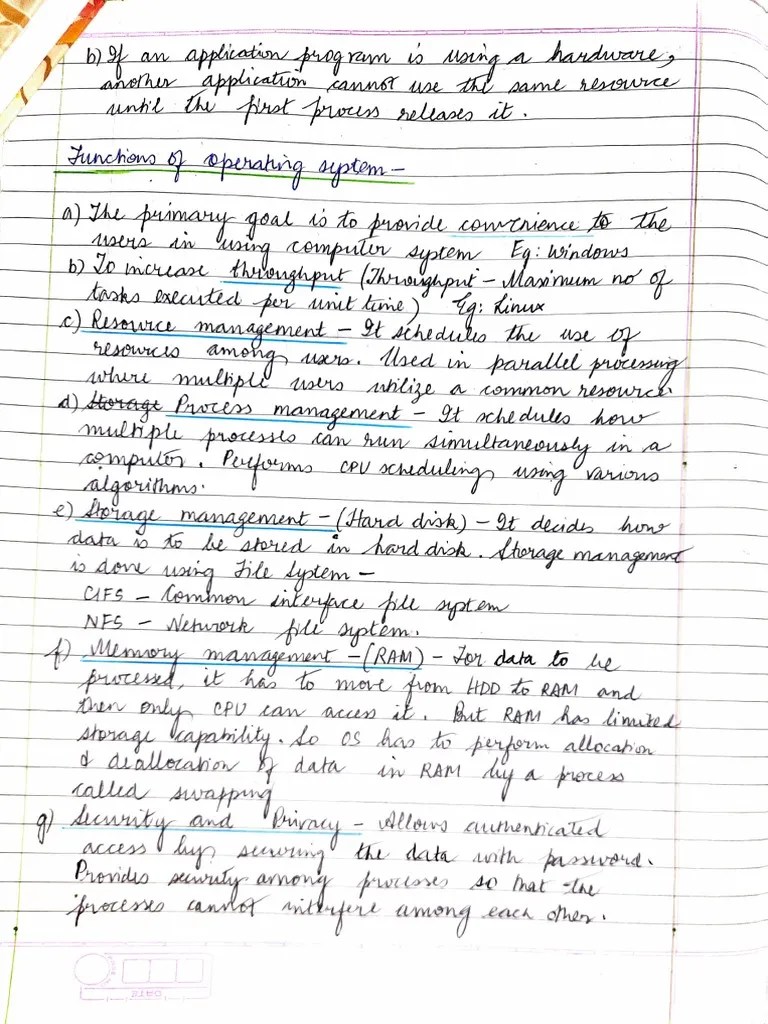 b) If an application program is using a hardware,
another application cannot use the same resource
until the first process releases it.
Functions of operating system -
a) The primary goal is to provide convenience to the
users in using computer system Eg: Windows
b) To increase throughput (Throughput - Maximum no of
tasks executed per unit time) Eg: Linux
c) Resource management - It schedules the use of
resources among users. Used in parallel processing
where multiple users utilize a common resource.
d) Storage Process management - It schedules how
multiple processes can run simultaneously in a
computer. Performs CPU scheduling using various
algorithms.
e) Storage management - (Hard disk) - It decides how
data is to be stored in hard disk. Storage management
is done using File System -
CIFS - Common interface file system
NFS - Network file system.
f) Memory management - (RAM) - For data to be
processed, it has to move from HDD to RAM and
then only CPU can access it. But RAM has limited
storage capability. So OS has to perform allocation
& deallocation of data in RAM by a process
called swapping
g) Security and Privacy - Allows authenticated
access by securing the data with password.
Provides security among processes so that the
processes cannot interfere among each other.
DATE